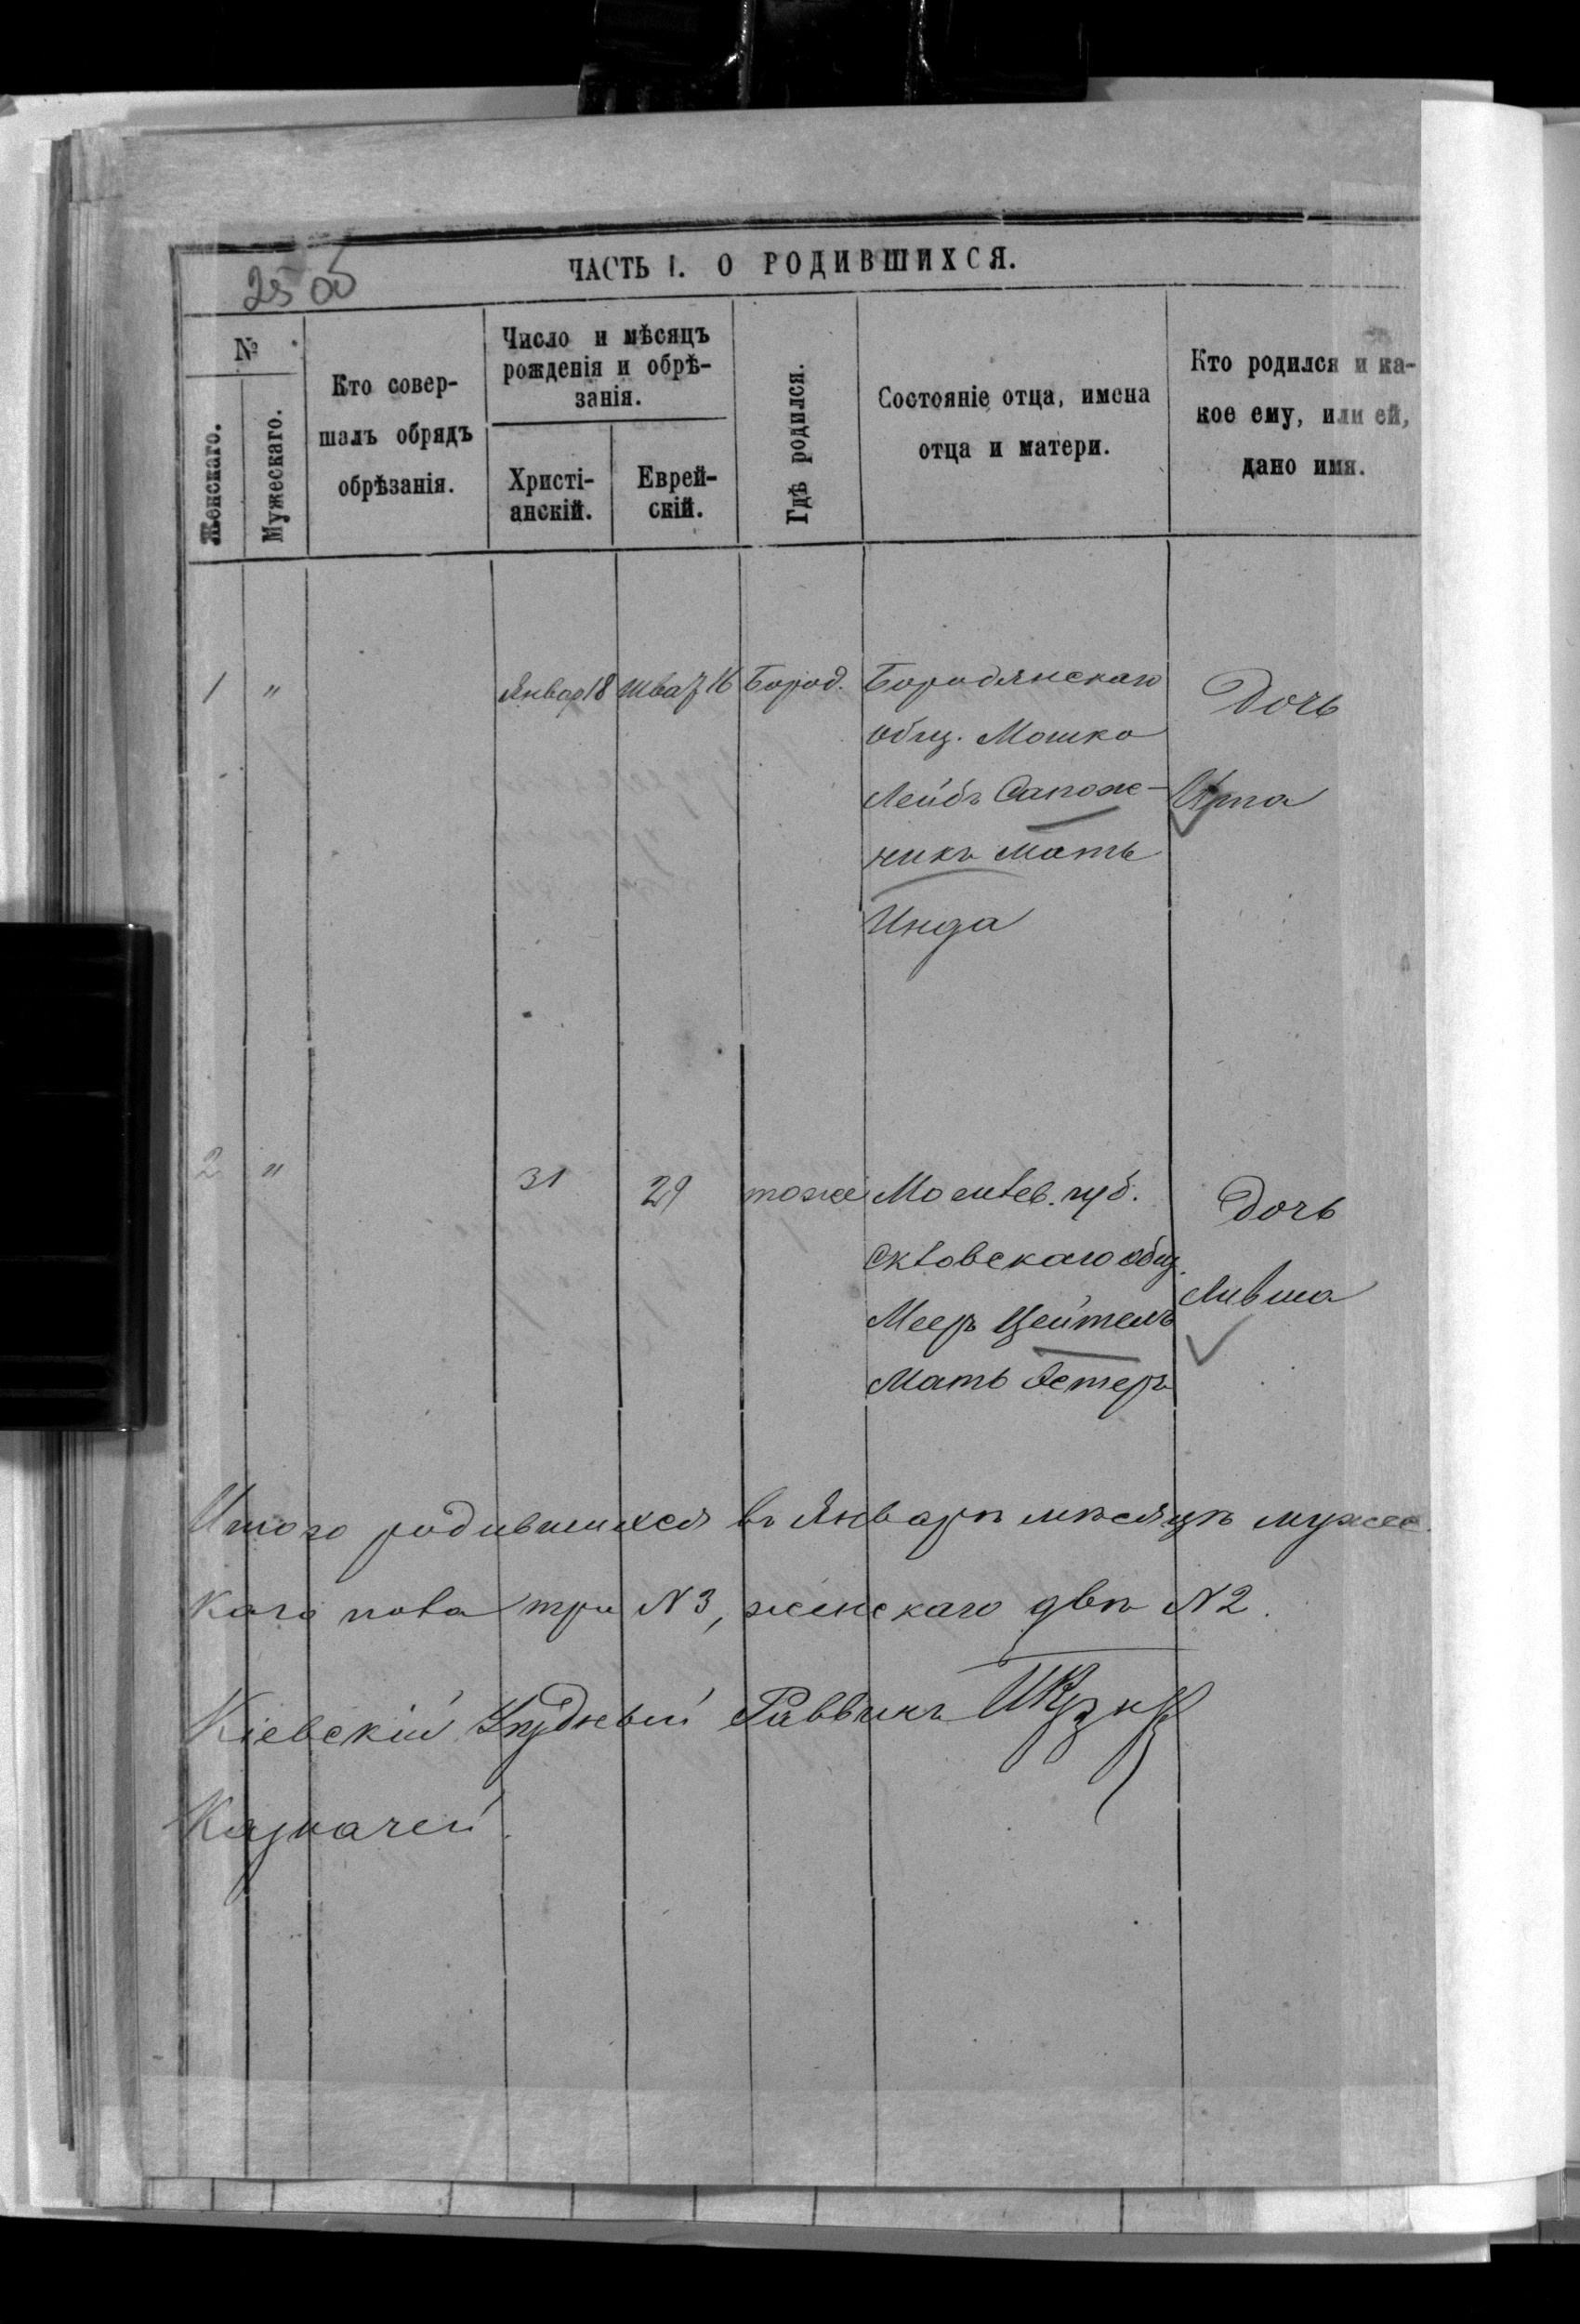 2500
ЧАСТЬ I. О РОДИВШИХСЯ.
№
Женскаго.
Мужескаго.
Кто совер-
шалъ обрядъ
обрѣзанія.
Число и мѣсяцъ
рожденія и обрѣ-
занія.
Христі-
анскій.
Еврей-
скій.
Гдѣ родился.
Состояніе отца, имена
отца и матери.
Кто родился и ка-
кое ему, или ей,
дано имя.
1 " Январ 18 Шват 16 Бород. Бородянскаго Дочь
общ. Мошко
Лейбъ Сапож-
никъ Мать
2 " 31 29 тоже Могилев. губ. Дочь
общ.
Мееръ Цейтель Лившa
Мать Эстеръ
Итого родившихся въ Январѣ мѣсяцѣ мужес
каго пола три N 3, женскаго двѣ N 2.
Кіевскій Уѣздный Раввинъ
Казначей